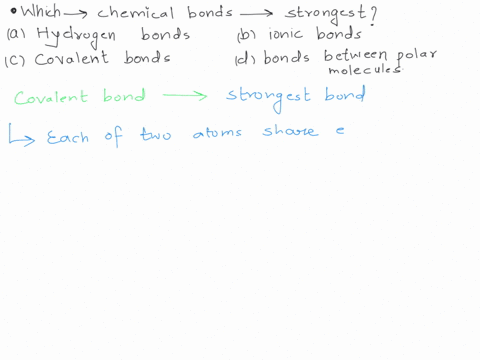 • Which → chemical bonds → strongest?
(a) Hydrogen bonds (b) ionic bonds
(c) Covalent bonds (d) bonds between polar molecules
Covalent bond → strongest bond
↳ Each of two atoms share e